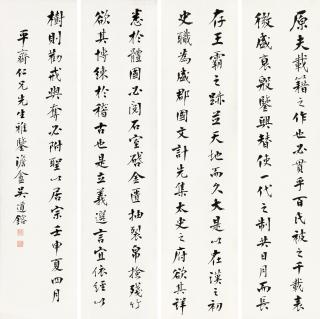 原夫載籍之作也必貫乎百氏被之千載表
徵盛衰殷鑒興替使一代之制共日月而長
存王霸之跡並天地而久大是以在漢之初
史職為盛郡國文計先集太史之府欲其詳
悉於體國必閱石室啓金匱抽裂帛撿殘竹
欲其博練於稽古也是立義選言宜依經以
樹則勸戒與奪必附聖以居宗壬申夏四月
平齋仁兄先生雅鑒 澹盦吳道鎔